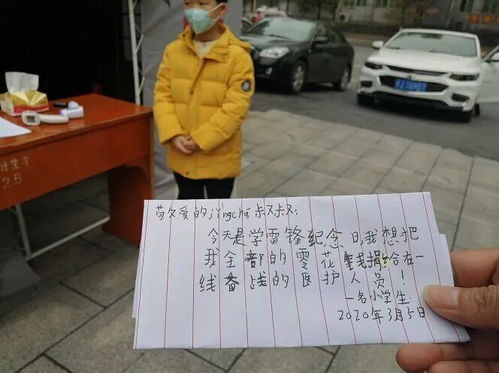 敬爱的jǐngchá叔叔:
今天是学雷锋纪念日,我想把
我全部的零花钱捐给在一
线备战的医护人员!
一名小学生
2020年3月5日
计生
25